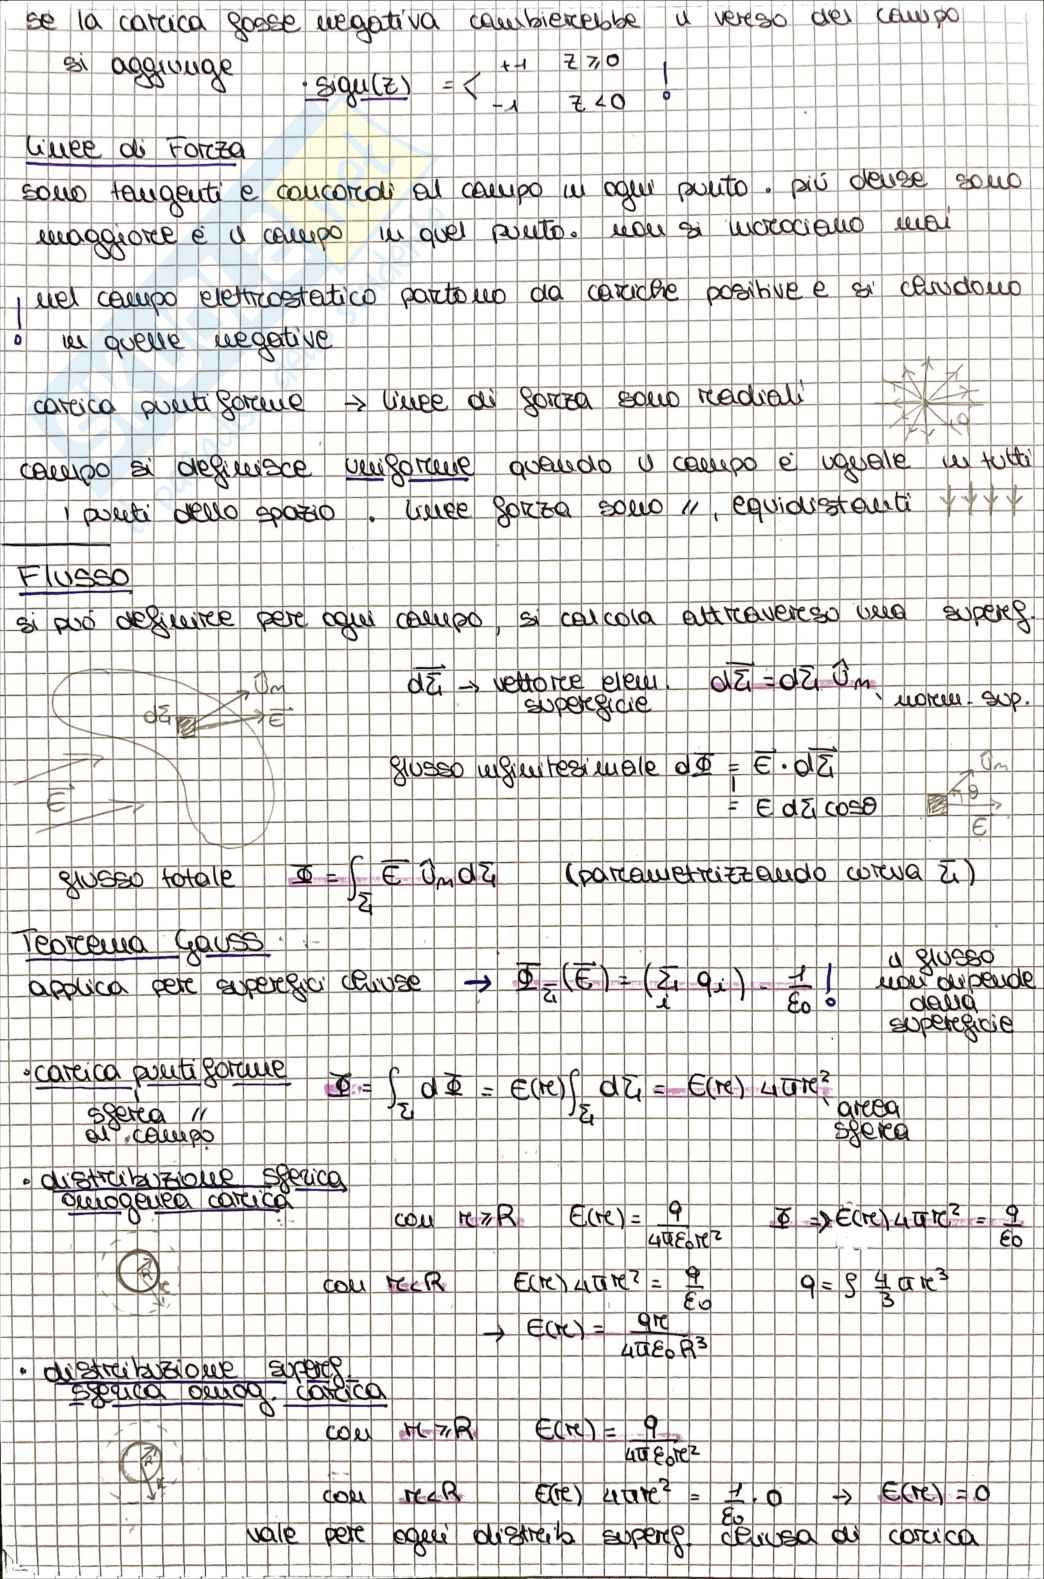 se la carica fosse negativa cambierebbe il verso del campo
si aggiunge · sign(z) = < +1 z ⩾ 0 !
-1 z < 0
Linee di Forza
sono tangenti e concordi al campo in ogni punto. più dense sono
maggiore è il campo in quel punto. non si incrociano mai
! nel campo elettrostatico partono da cariche positive e si chiudono
in quelle negative
carica puntiforme → linee di forza sono radiali
campo si definisce uniforme quando il campo è uguale in tutti
i punti dello spazio. linee forza sono //, equidistanti ↓↓↓↓
Flusso
si può definire per ogni campo, si calcola attraverso una superf.
dΣ⃗ → vettore elem. superficie dΣ⃗ = dΣ Ûm norm. sup.
Ûm
dΣ
E⃗
flusso infinitesimale dΦ = E⃗ · dΣ⃗
= E dΣ cosθ
E⃗
Ûm
θ
E⃗
flusso totale Φ = ∫Σ E⃗ Ûm dΣ (parametrizzando curva Σ)
Teorema Gauss
applica per superfici chiuse → ΦΣ(E⃗) = (Σi qi) · 1/ε0 ! il flusso non dipende dalla superficie
· carica puntiforme Φ = ∫Σ dΦ = E(r) ∫Σ dΣ = E(r) 4πr² area sfera
sfera //
al campo
· distribuzione sferica
omogenea carica
con r ⩾ R E(r) = q/4πε0r² Φ ⇒ E(r) 4πr² = q/ε0
R r
con r < R E(r) 4πr² = q/ε0 q = ρ 4/3 πr³
→ E(r) = qr/4πε0R³
· distribuzione superf.
sferica omog. carica
con r ⩾ R E(r) = q/4πε0r²
R r
con r < R E(r) 4πr² = 1/ε0 · 0 → E(r) = 0
vale per ogni distrib superf. chiusa di carica